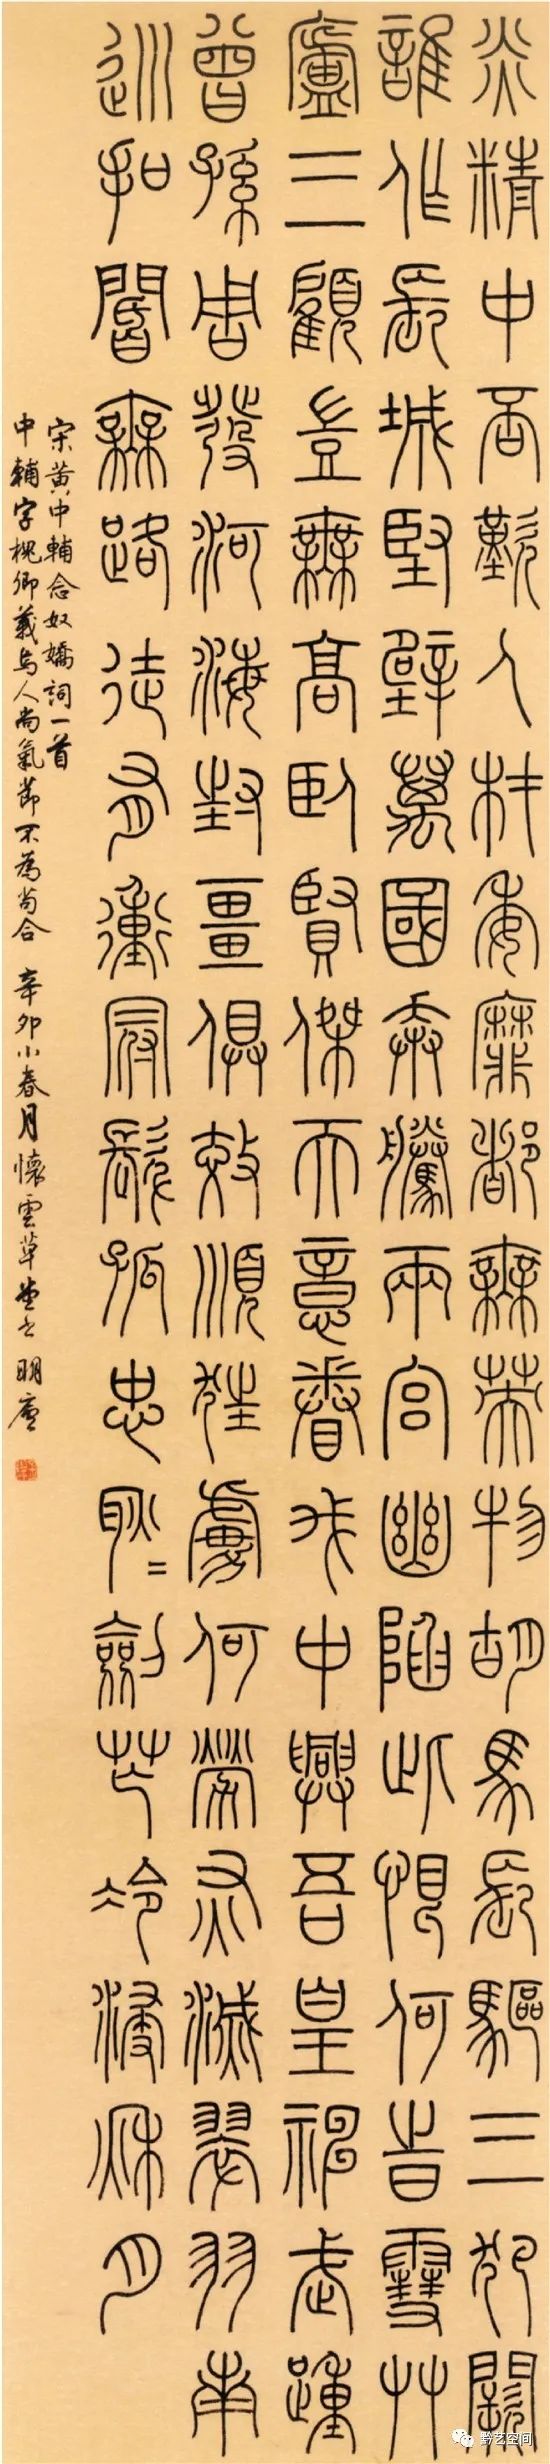 炎精中否歎人材委靡都無英物胡馬長驅三犯闕
誰作長城堅壁萬國奔騰兩宮幽陷此恨何時雪艸
廬三顧豈無高臥賢傑天意眷我中興吾皇神武踵
曾孫周發河海封疆俱效順狂虜何勞灰滅翠羽南
巡扣閽無路徒有衝冠髮孤忠耿〻劍芒冷浸秋月
宋黃中輔念奴嬌詞一首
中輔字槐卿義烏人尚氣節不為苟合 辛卯小春月懷雲草堂 明
黔艺空间